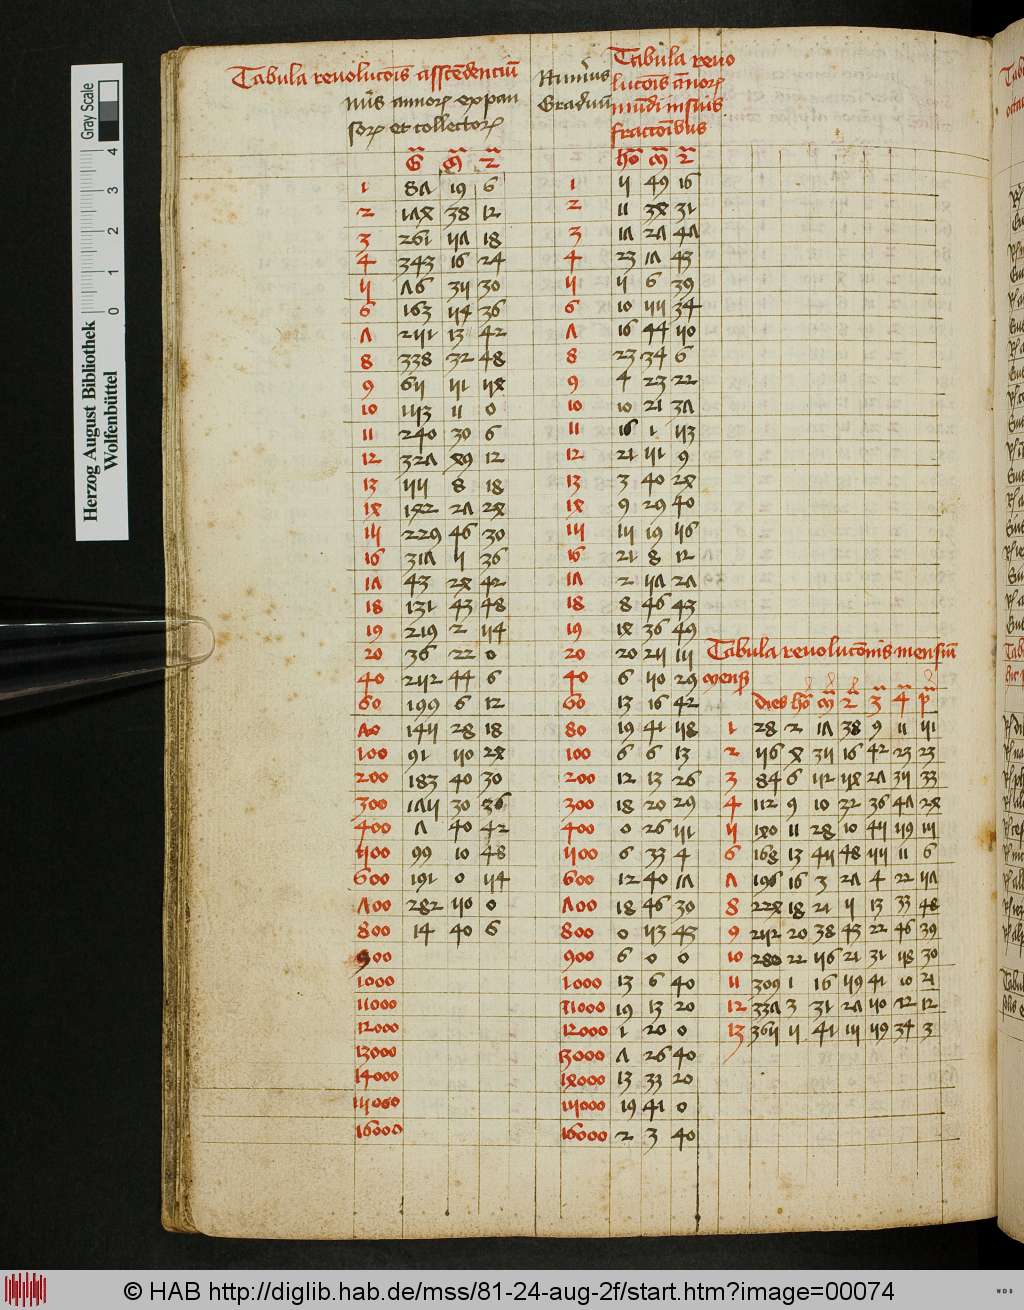 Herzog August Bibliothek
Wolfenbüttel
0 1 2 3 4
Gray Scale
Tabula reuolucōis asscēdenciū
nūs annorꝝ expan
sorꝝ et collectorꝝ
G m̄ 2
1 87 19 6
2 174 38 12
3 261 57 18
4 343 16 24
5 76 35 30
6 163 54 36
7 251 13 42
8 338 32 48
9 65 51 54
10 153 11 0
11 240 30 6
12 327 49 12
13 55 8 18
14 142 27 24
15 229 46 30
16 317 5 36
17 43 24 42
18 131 43 48
19 219 2 54
20 36 22 0
40 252 44 6
60 199 6 12
145 28 18
100 91 50 24
200 183 40 30
300 175 30 36
400 7 40 42
500 99 10 48
600 191 0 54
700 282 50 0
800 14 40 6
900
1000
11000
12000
13000
14000
15000
16000
Numerus
Graduū
Tabula reuo
lucōis ānorꝝ
mūdi in suis
fractōibus
hō m̄ 2
1 5 49 16
2 11 38 31
3 17 27 47
4 23 17 43
5 5 6 39
6 10 55 34
7 16 44 50
8 23 34 6
9 4 23 22
10 10 21 37
11 16 1 53
12 21 51 9
13 3 40 24
14 9 29 40
15 15 19 56
16 21 8 12
17 2 57 27
18 8 46 43
19 14 36 49
20 20 25 15
40 6 50 29
60 13 16 42
80 19 41 58
100 6 6 13
200 12 13 26
300 18 20 29
400 0 26 51
500 6 33 4
600 12 40 17
700 18 46 30
800 0 53 43
900 6 0 0
1000 13 6 40
11000 19 13 20
12000 1 20 0
13000 7 26 40
14000 13 33 20
15000 19 41 0
16000 2 3 40
Tabula reuolucōnis mensiū
mens
dies hō m̄ 2 3 4 p
1 28 2 17 38 9 11 51
2 56 4 35 16 42 23 23
3 84 6 52 54 27 35 33
4 112 9 10 22 36 47 24
5 140 11 28 10 45 59 15
6 168 13 45 48 55 11 6
7 196 16 3 27 4 22 57
8 224 18 21 5 13 33 48
9 252 20 38 43 22 46 39
10 280 22 56 21 31 58 30
11 309 1 16 59 41 10 21
12 337 3 31 27 50 12 12
13 365 5 41 15 59 34 3
© HAB http://diglib.hab.de/mss/81-24-aug-2f/start.htm?image=00074